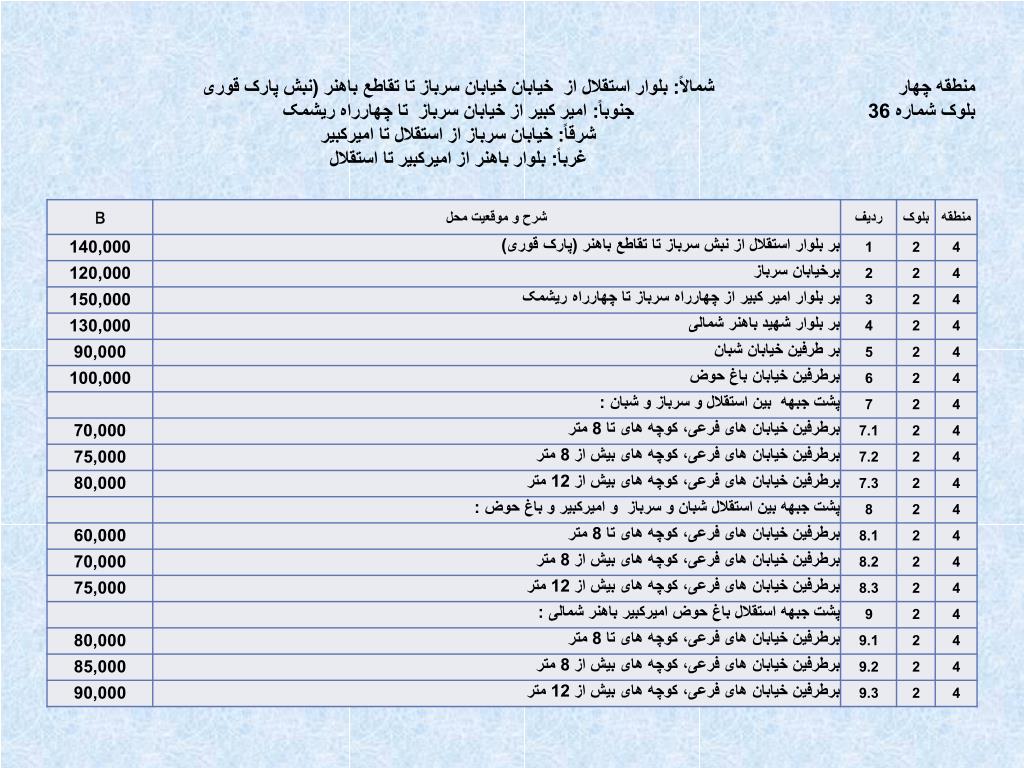 منطقه چهار شمالاً: بلوار استقلال از خیابان خیابان سرباز تا تقاطع باهنر (نبش پارک قوری
بلوک شماره 36 جنوباً: امیر کبیر از خیابان سرباز تا چهارراه ریشمک
شرقاً: خیابان سرباز از استقلال تا امیرکبیر
غرباً: بلوار باهنر از امیرکبیر تا استقلال
منطقه بلوک ردیف شرح و موقعیت محل B
4 2 1 بر بلوار استقلال از نبش سرباز تا تقاطع باهنر (پارک قوری) 140,000
4 2 2 برخیابان سرباز 120,000
4 2 3 بر بلوار امیر کبیر از چهارراه سرباز تا چهارراه ریشمک 150,000
4 2 4 بر بلوار شهید باهنر شمالی 130,000
4 2 5 بر طرفین خیابان شبان 90,000
4 2 6 برطرفین خیابان باغ حوض 100,000
4 2 7 پشت جبهه بین استقلال و سرباز و شبان :
4 2 7.1 برطرفین خیابان های فرعی، کوچه های تا 8 متر 70,000
4 2 7.2 برطرفین خیابان های فرعی، کوچه های بیش از 8 متر 75,000
4 2 7.3 برطرفین خیابان های فرعی، کوچه های بیش از 12 متر 80,000
4 2 8 پشت جبهه بین استقلال شبان و سرباز و امیرکبیر و باغ حوض :
4 2 8.1 برطرفین خیابان های فرعی، کوچه های تا 8 متر 60,000
4 2 8.2 برطرفین خیابان های فرعی، کوچه های بیش از 8 متر 70,000
4 2 8.3 برطرفین خیابان های فرعی، کوچه های بیش از 12 متر 75,000
4 2 9 پشت جبهه استقلال باغ حوض امیرکبیر باهنر شمالی :
4 2 9.1 برطرفین خیابان های فرعی، کوچه های تا 8 متر 80,000
4 2 9.2 برطرفین خیابان های فرعی، کوچه های بیش از 8 متر 85,000
4 2 9.3 برطرفین خیابان های فرعی، کوچه های بیش از 12 متر 90,000